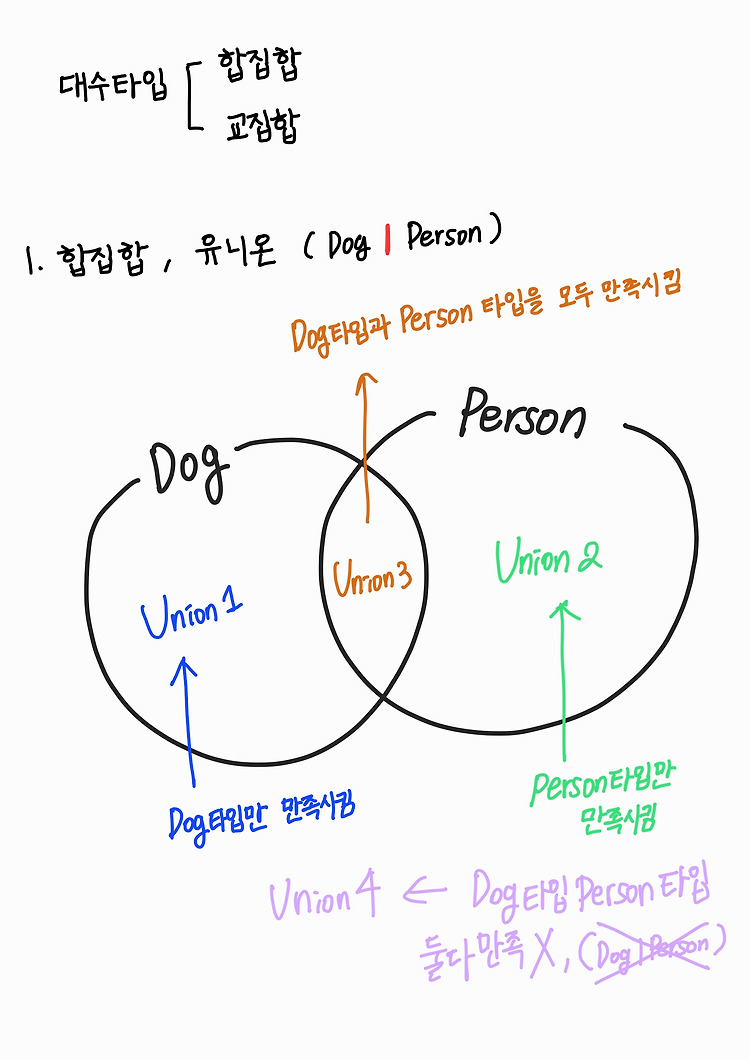 대수타입
합집합
교집합
1. 합집합, 유니온 (Dog | Person)
Dog타입과 Person 타입을 모두 만족시킴
Dog
Person
Union1
Union3
Union2
Dog타입만 만족시킴
Person타입만
만족시킴
Union4 ← Dog타입 Person타입
둘다 만족 X, (Dog | Person)